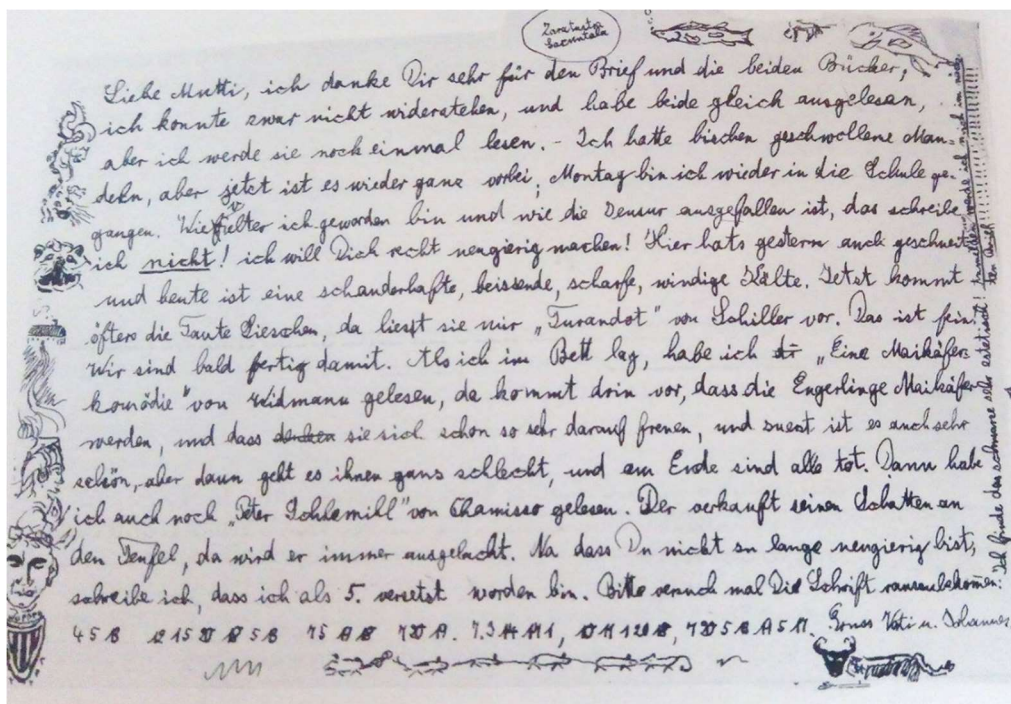 Zaratustra
Sacuntala
Liebe Mutti, ich danke Dir sehr für den Brief und die beiden Bücher,
ich konnte zwar nicht widerstehen, und habe beide gleich ausgelesen,
aber ich werde sie noch einmal lesen. - Ich hatte bischen geschwollene Man-
deln, aber jetzt ist es wieder ganz vorbei, Montag bin ich wieder in die Schule ge-
gangen. Wiefielter ich geworden bin und wie die Zensur ausgefallen ist, das schreibe
ich nicht! ich will Dich recht neugierig machen! Hier hats gestern auch geschneit
und heute ist eine schauderhafte, beissende, scharfe, windige Kälte. Jetzt kommt
öfters die Tante Lieschen, da liest sie mir „Turandot" von Schiller vor. Das ist fein.
Wir sind bald fertig damit. Als ich im Bett lag, habe ich „Eine Maikäfer-
komödie" von Widmann gelesen, da kommt drin vor, dass die Engerlinge Maikäfer
werden, und dass sie sich schon so sehr darauf freuen, und zuerst ist es auch sehr
schön, aber dann geht es ihnen ganz schlecht, und am Ende sind alle tot. Dann habe
ich auch noch „Peter Schlemihl" von Chamisso gelesen. Der verkauft seinen Schatten an
den Teufel, da wird er immer ausgelacht. Na dass Du nicht so lange neugierig bist,
schreibe ich, dass ich als 5. versetzt worden bin. Bitte versuch mal die Schrift rauszubekommen:
Gruss Vati u. Johannes
Ich finde das schwarze sehr estetisch!